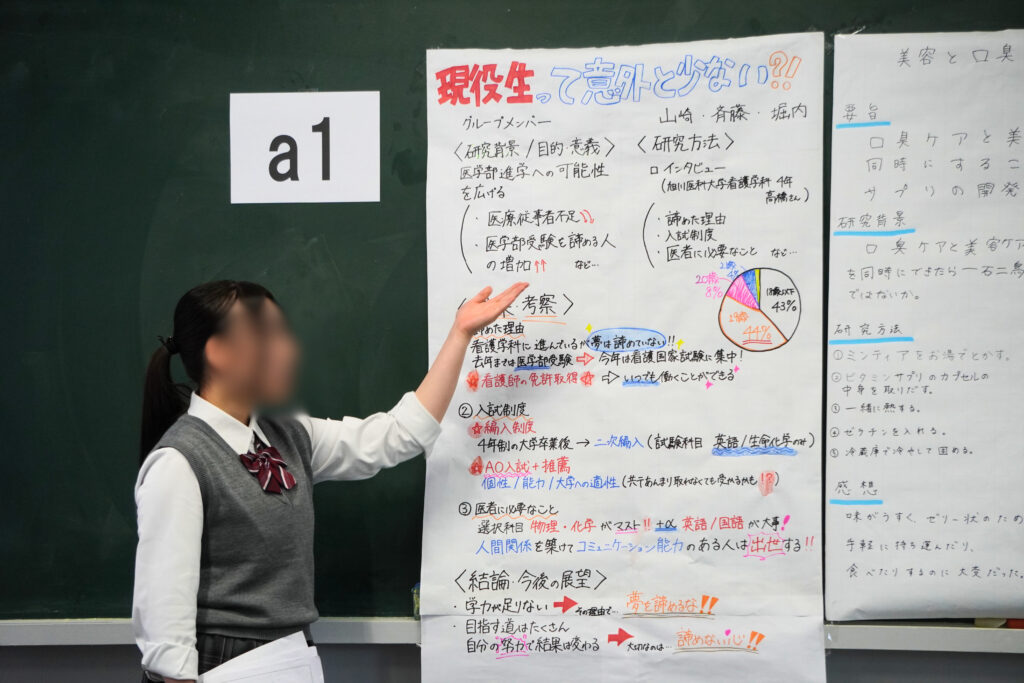 a1
現役生って意外と少ない?!
グループメンバー 山崎・斉藤・堀内
〈研究背景/目的・意義〉
医学部進学への可能性
を広げる
・医療従事者不足
・医学部受験を諦める人
の増加↑↑ など…
〈研究方法〉
ロインタビュー
(旭川医科大学看護学科 4年
高橋さん)
・諦めた理由
・入試制度
・医者に必要なこと など…
20歳
8%
18歳以下
43%
19歳
44%
・考察〉
諦めた理由
看護学科に進んでいるが夢は諦めていない!!
去年までは医学部受験⇨今年は看護国家試験に集中!
看護師の免許取得 ⇨いつでも働くことができる
②入試制度
編入制度
4年制の大学卒業後→二次編入(試験科目 英語/生命化学のみ)
AO入試+推薦
個性/能力/大学への適性(共テあんまり取れなくても受かるかも!?)
③医者に必要なこと
選択科目 物理・化学がマスト!! +α 英語/国語が大事!
人間関係を築けてコミュニケーション能力のある人は出世する!!
〈結論・今後の展望〉
・学力が足りない➡その理由で…夢を諦めるな!!
・目指す道はたくさん
自分の努力で結果は変わる➡大切なのは…諦めない心!!
美容と口臭
要旨
口臭ケアと美
同時にするこ
サプリの開発
研究背景
口臭ケアと美容ケア
を同時にできたら一石二鳥
ではないか。
研究方法
①ミンティアをお湯でとかす。
②ビタミンサプリのカプセルの
中身を取りだす。
③一緒に熱する。
④ゼラチンを入れる。
⑤冷蔵庫で冷やして固める。
感想
味がうすく、ゼリー状のため
手軽に持ち運んだり、
食べたりするのに大変だった。